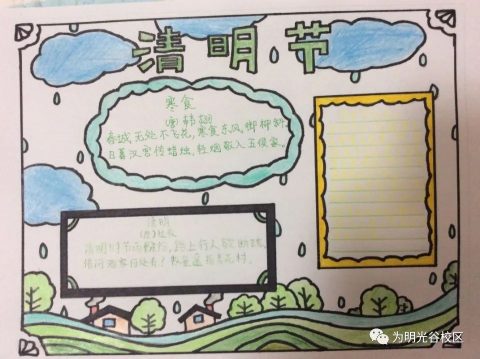 清明节
寒食
(唐)韩翃
春城无处不飞花,寒食东风,御柳斜
日暮汉宫传蜡烛,轻烟散入五侯家。
清明
(唐)杜牧
清明时节雨纷纷,路上行人欲断魂,
借问酒家何处有?牧童遥指杏花村.
为明光谷校区